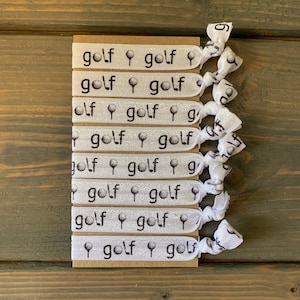 golf golf
golf golf
olf golf g
golf golf
golf golf
golf golf
golf golf
golf golf